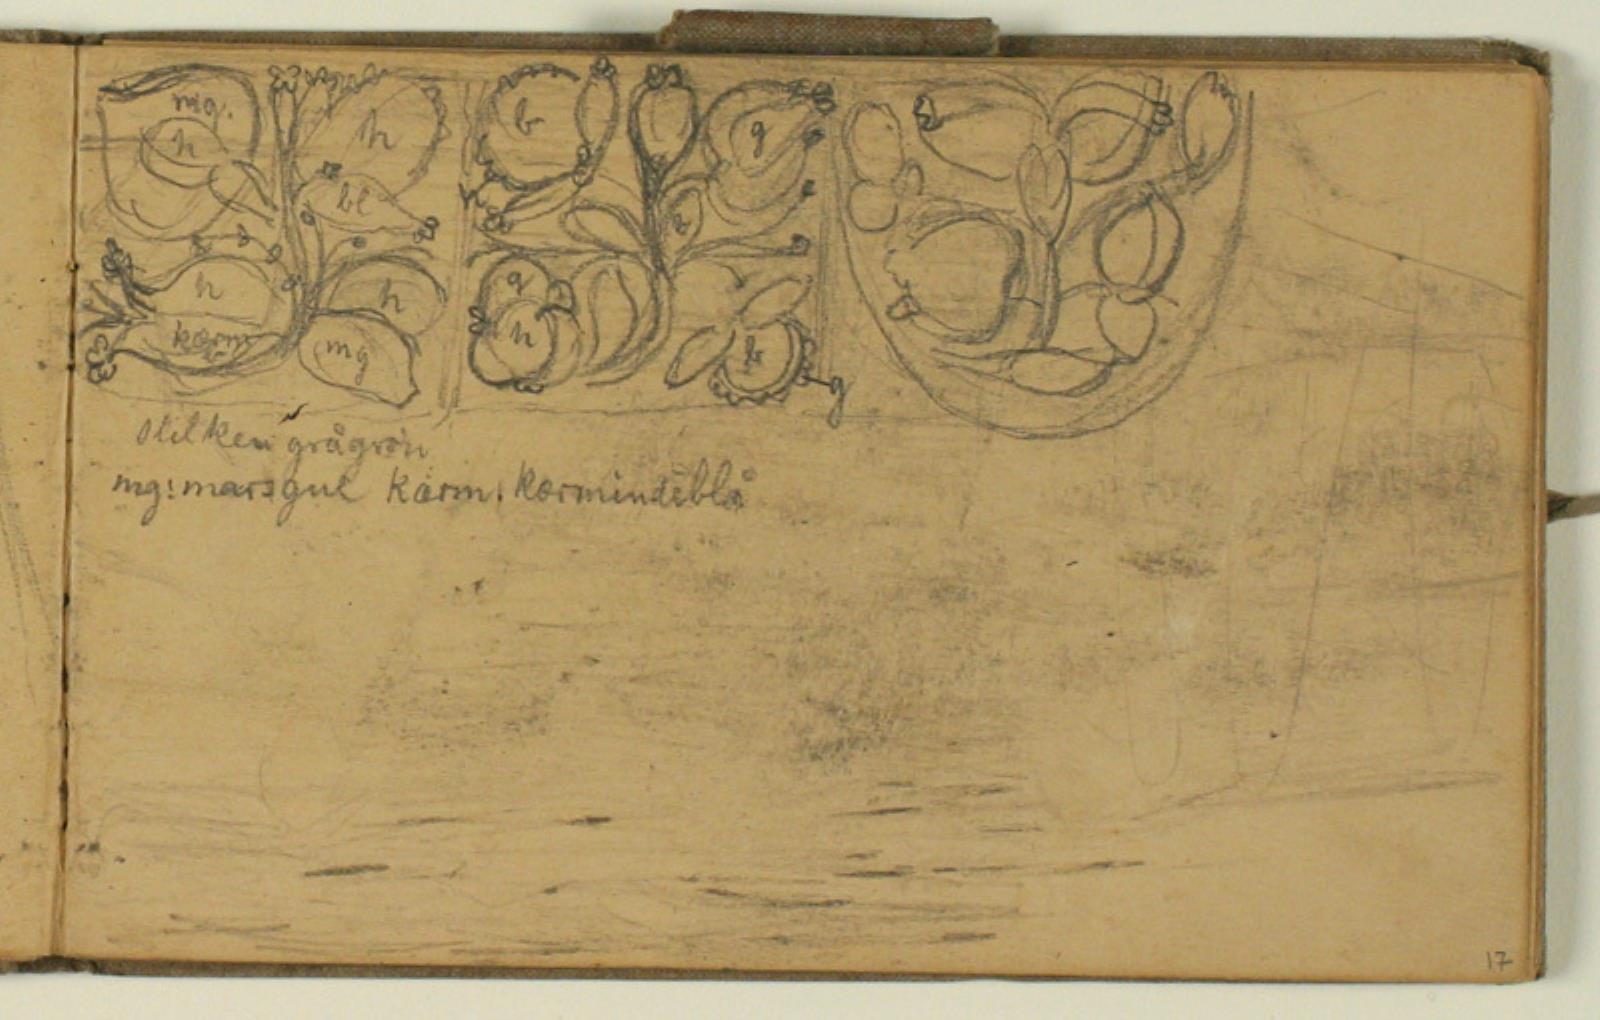 mg.
h
h
bl
h
h
karm
mg
b
g
g
h
b
g
stilken grågrön
mg: marsgul karm: karmindeblå
17